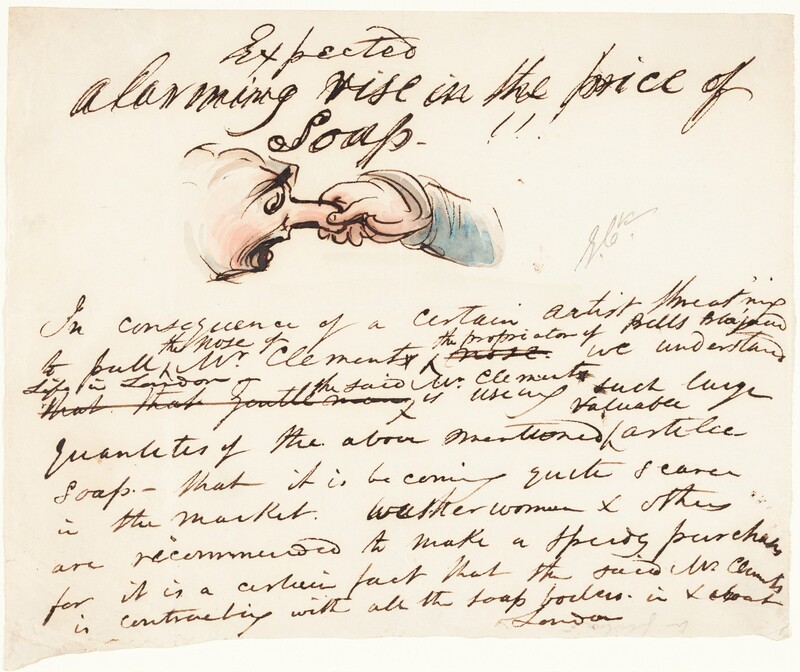 Expected
alarming rise in the price of
Soap - !!
G. Ck
In consequence of a certain artist threat'ning
to pull the nose of Mr Clement x the propriator of Bells
Life in London we understand
that that gentleman the said Mr Clements x is useing such large
quantetes of the above mentioned valuable article
Soap - that it is becoming quite scarce
in the market. washerwomen & others
are recommended to make a speedy purchase
for it is a certain fact that the said Mr Clements
is contracting with all the soap boilers. in & about
London